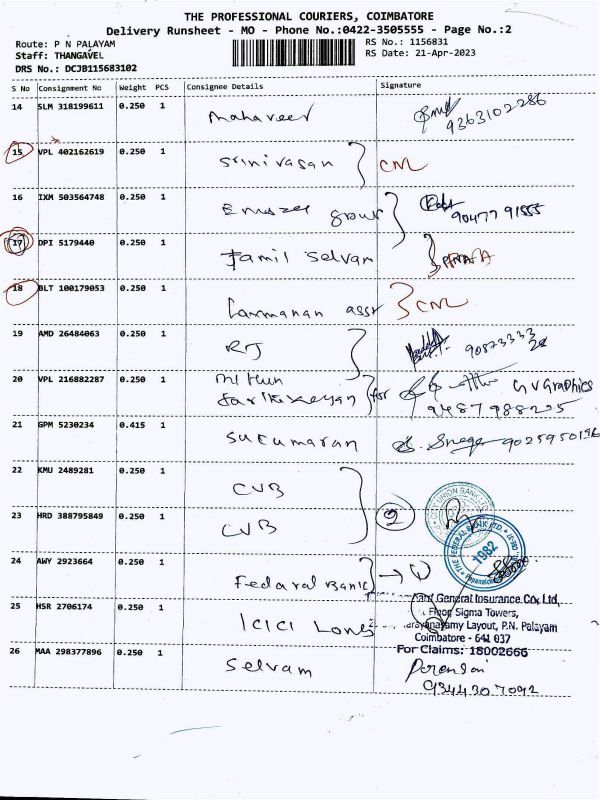 THE PROFESSIONAL COURIERS, COIMBATORE
Delivery Runsheet - MO - Phone No.:0422-3505555 - Page No.:2
Route: P N PALAYAM
RS No.: 1156831
Staff: THANGAVEL
RS Date: 21-Apr-2023
DRS No.: DCJB115683102
S No Consignment No Weight PCS Consignee Details Signature
14 SLM 318199611 0.250 1 Mahaveer 9363102286
15 VPL 402162619 0.250 1 Srinivasan CNL
16 IXM 503564748 0.250 1 group 90477 91555
17 DPI 5179440 0.250 1 Tamil Selvam
18 BLT 100179053 0.250 1 Laxmanan assr CNL
19 AMD 26484063 0.250 1 RJ
20 VPL 216882287 0.250 1 Mithun
Karthikeyan for GV Graphics
9487988205
21 GPM 5230234 0.415 1 Sukumaran Snega
22 KMU 2489281 0.250 1 CUB
23 HRD 388795849 0.250 1 CUB 2
UNION BANK
THE FEDERAL BANK LTD.
1982
24 AWY 2923664 0.250 1 Federal Bank → 1
25 HSR 2706174 0.250 1 ICICI Lomb
General Insurance Co. Ltd,
Floor Sigma Towers,
Layout, P.N. Palayam
Coimbatore - 641 037
For Claims: 18002666
26 MAA 298377896 0.250 1 Selvam
9344307092